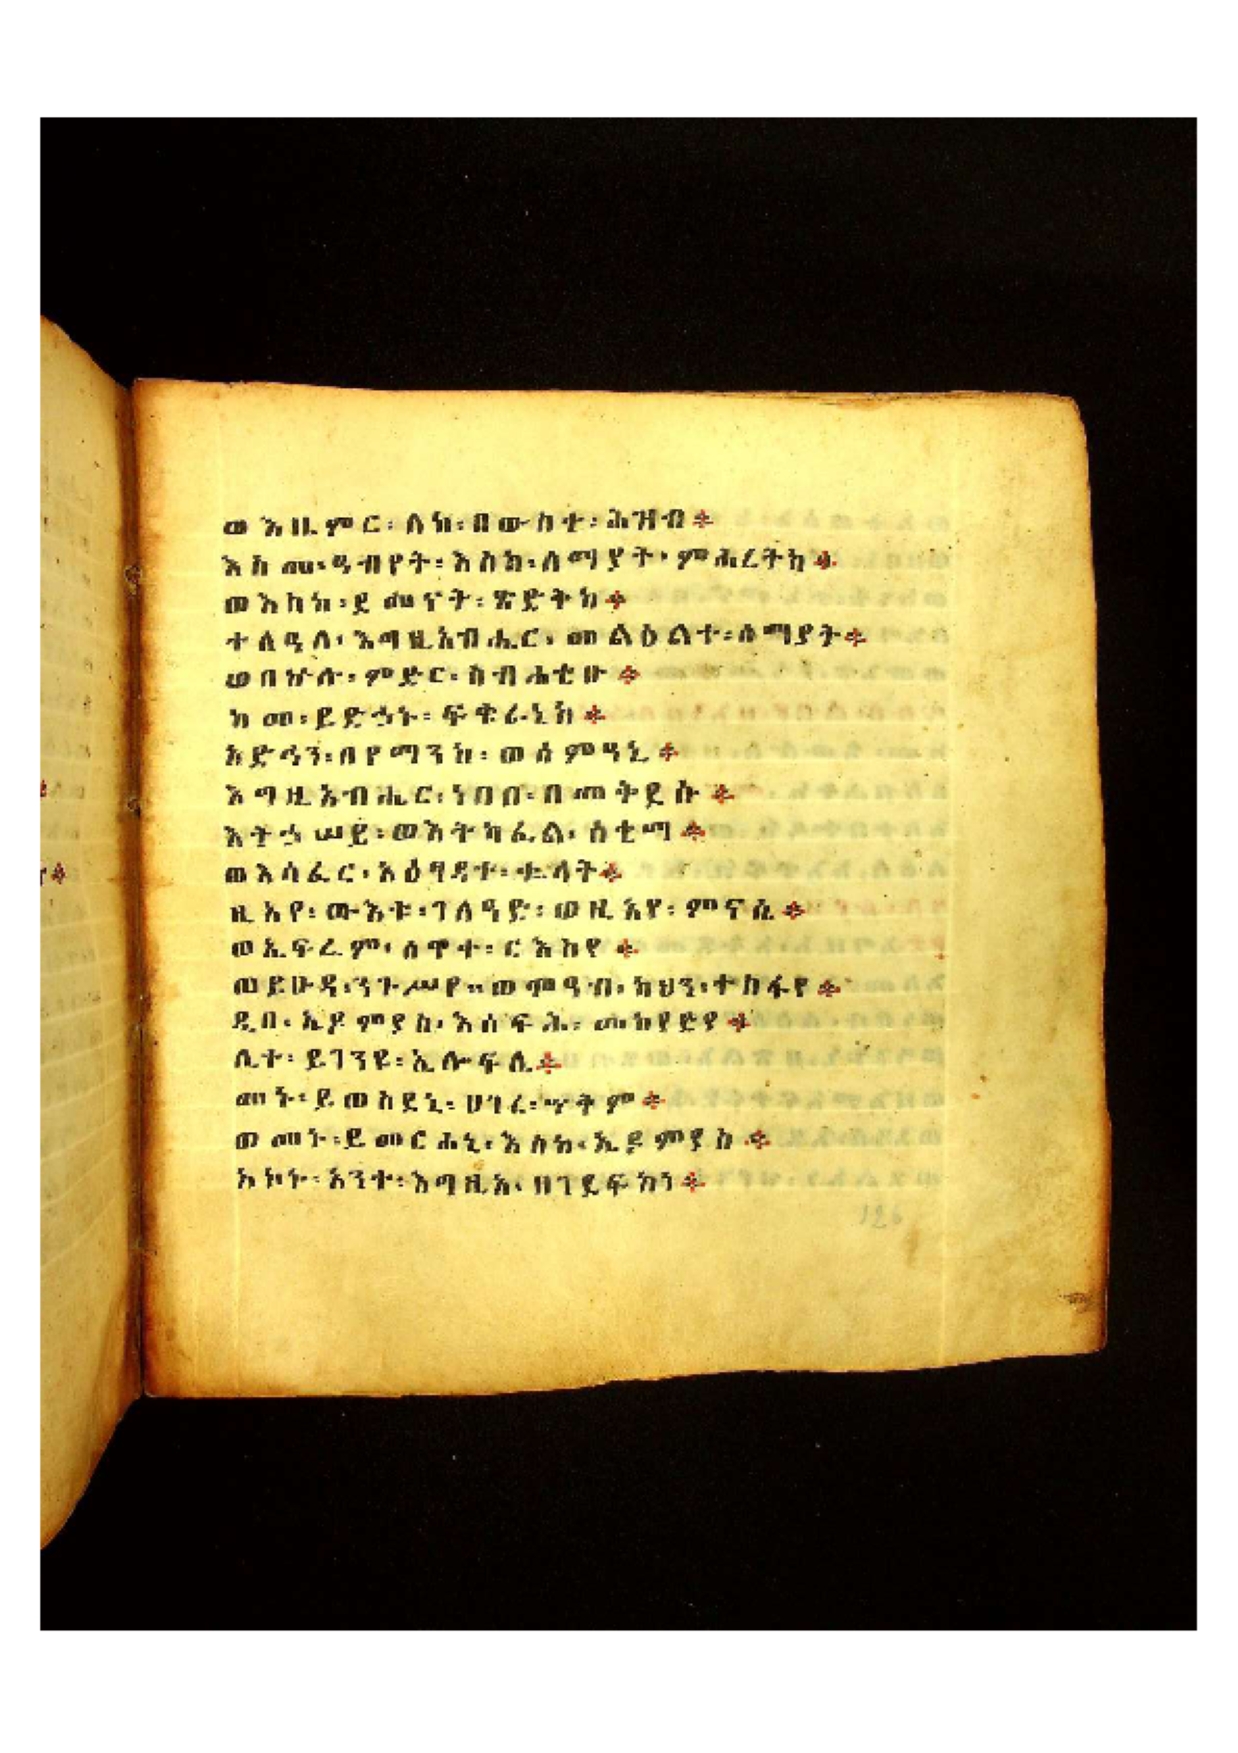 ወእዜምር፡ ለከ፡ በውስተ፡ ሕዝብ፨
እስመ፡ ዓብየት፡ እስከ፡ ሰማያት፡ ምሕረትከ፨
ወእስከ፡ ደመናት፡ ጽድቅከ፨
ተለዓለ፡ እግዚአብሔር፡ መልዕልተ፡ ሰማያት፨
ወበኵሉ፡ ምድር፡ ስብሐቲሁ፨
ከመ፡ ይድኃኑ፡ ፍቁራኒከ፨
አድኅን፡ በየማንከ፡ ወሰምዓኒ፨
እግዚአብሔር፡ ነበበ፡ በመቅደሱ፨
እትኃሠይ፡ ወእትካፈል፡ ሰቂማ፨
ወእሳፈር፡ አዕፃዳተ፡ ቈላት፨
ዚአየ፡ ውእቱ፡ ገለዓድ፡ ወዚአየ፡ ምናሴ፨
ወኤፍሬም፡ ጸዋተ፡ ርእስየ፨
ወይሁዳ፡ ንጉሥየ። ወሞዓብ፡ ከህን፡ ተስፋየ፨
ዲበ፡ ኤዶምያስ፡ እሰፍሕ፡ መከየድየ፨
ሊተ፡ ይገንዩ፡ ኢሎፍሊ፨
መኑ፡ ይወስደኒ፡ ሀገረ፡ ጥቅም፨
ወመኑ፡ ይመርሐኒ፡ እስከ፡ ኤዶምያስ፨
አኮኑ፡ አንተ፡ እግዚአ፡ ዘገደፍከነ፨
126